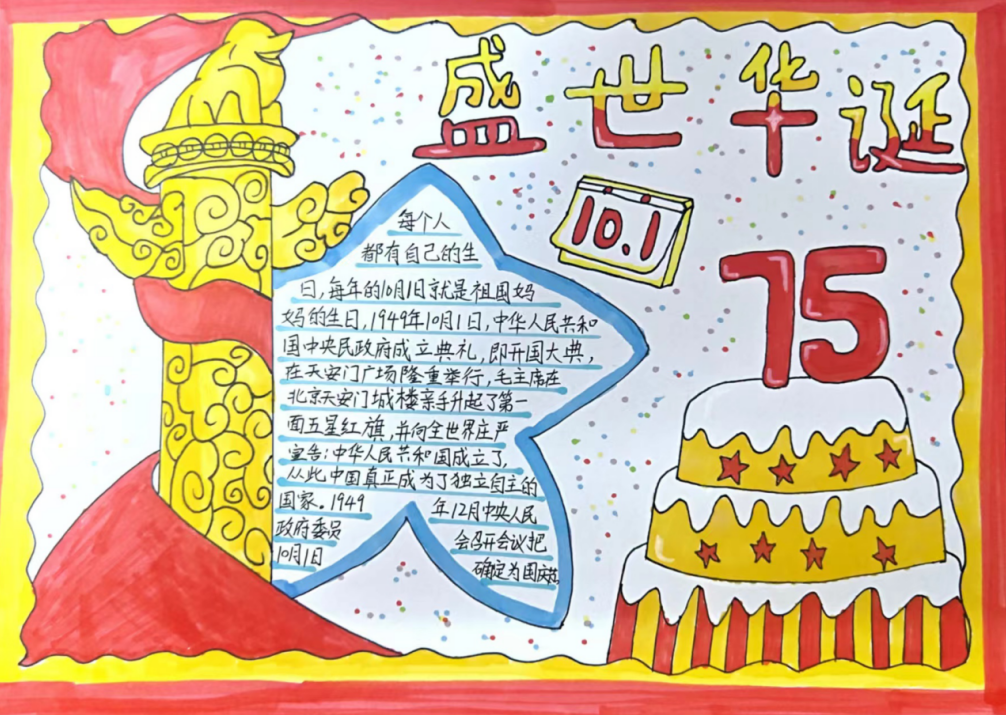 盛世华诞
10.1
75
每个人
都有自己的生
日，每年的10月1日就是祖国妈
妈的生日，1949年10月1日，中华人民共和
国中央民政府成立典礼，即开国大典，
在天安门广场隆重举行，毛主席在
北京天安门城楼亲手升起了第一
面五星红旗，并向全世界庄严
宣告：中华人民共和国成立了，
从此中国真正成为了独立自主的
国家。1949 年12月中央人民
政府委员 会召开会议把
10月1日 确定为国庆节